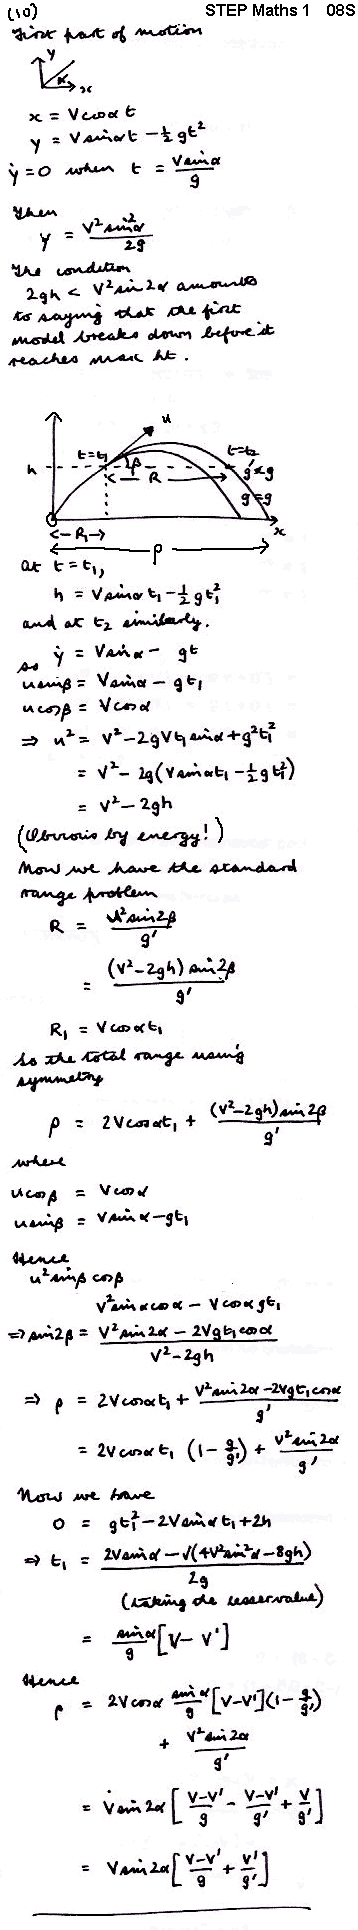 (10) STEP Maths 1 08S
First part of motion
y
α
x
x = Vcosα t
y = Vsinαt − ½gt²
ẏ = 0 when t = Vsinα/g
Then
y = V²sin²α/2g
The condition
2gh < V²sin2α amounts
to saying that the first
model breaks down before it
reaches max ht.
u
t=t₁ β t=t₂
h <— R —> g'<g
g'=g
0 <-R₁-> x
<— ρ —>
At t = t₁,
h = Vsinα t₁ − ½gt₁²
and at t₂ similarly.
so ẏ = Vsinα − gt
usinβ = Vsinα − gt₁
ucosβ = Vcosα
⇒ u² = V² − 2gVt₁sinα + g²t₁²
= V² − 2g(Vsinαt₁ − ½gt₁²)
= V² − 2gh
(Obvious by energy!)
Now we have the standard
range problem
R = u²sin2β/g'
= (V²−2gh) sin2β/g'
R₁ = Vcosαt₁
So the total range using
symmetry
ρ = 2Vcosαt₁ + (V²−2gh)sin2β/g'
where
ucosβ = Vcosα
usinβ = Vsinα − gt₁
Hence
u²sinβ cosβ
V²sinαcosα − Vcosαgt₁
⇒ sin2β = V²sin2α − 2Vgt₁cosα/V² − 2gh
⇒ ρ = 2Vcosαt₁ + V²sin2α − 2Vgt₁cosα/g'
= 2Vcosαt₁ (1 − g/g') + V²sin2α/g'
Now we have
0 = gt₁² − 2Vsinαt₁ + 2h
⇒ t₁ = 2Vsinα − √(4V²sin²α − 8gh)/2g
(taking the lesser value)
= sinα/g [V − V']
Hence
ρ = 2Vcosα sinα/g [V−V'](1 − g/g')
+ V²sin2α/g'
= Vsin2α [V−V'/g − V−V'/g' + V/g']
= Vsin2α [V−V'/g + V'/g']